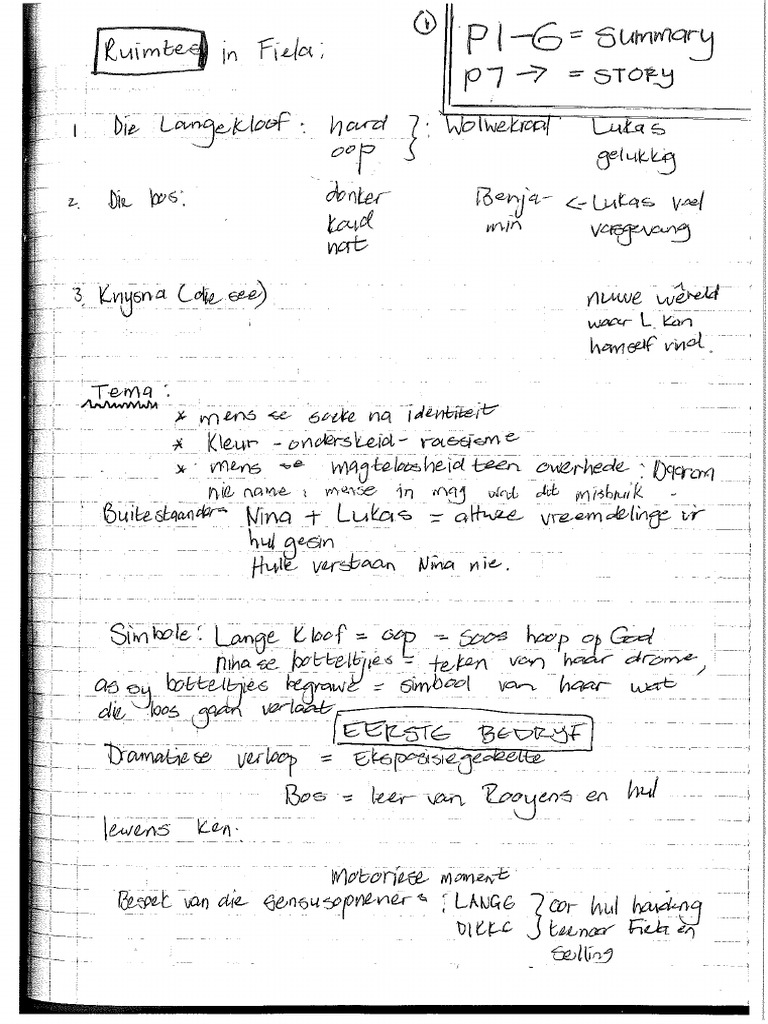 Ruimtes in Fiela:
①
P1-6 = Summary
P7 → = STORY
1 Die Langekloof: hard } : Wolwekraal Lukas
oop } gelukkig
2. Die bos: donker Benja- <- Lukas voel
koud min vasgevang
nat
3. Knysna (die see) nuwe wêreld
waar L. kan
homself vind.
Tema:
* mens se soeke na identiteit
* Kleur-onderskeid-rassisme
* mens se magteloosheid teen owerhede: Daarom
nie name: mense in mag wat dit misbruik
Buitestaanders Nina + Lukas = altwee vreemdelinge vir
hul gesin
Hulle verstaan Nina nie.
Simbole: Lange Kloof = oop = soos hoop op God
Nina se botteltjies = teken van haar drome,
as sy botteltjies begrawe = simbool van haar wat
die bos gaan verlaat
EERSTE BEDRYF
Dramatiese verloop = Eksposisiegedeelte
Bos = leer van Rooyens en hul
lewens ken.
Motoriese moment
Besoek van die sensusopnemers: LANGE } oor hul houding
DIKKE } teenoor Fiela en
Selling